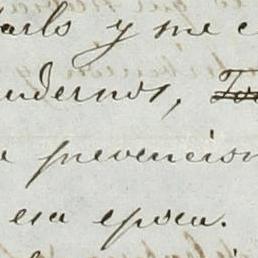 arlo y me c
udernos, To
prevencion
esa epoca.